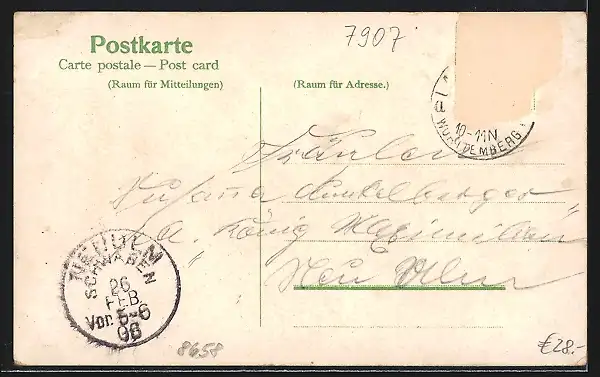 Postkarte
Carte postale — Post card
(Raum für Mitteilungen)
7907
(Raum für Adresse.)
10-11N
WÜRTTEMBERG
Fräulein
Susanna Dunkelberger
z. König Maximilian
Neu Ulm
NEU-ULM
SCHWABEN
26
FEB.
Vor. 5-6
06
8658
€28.-